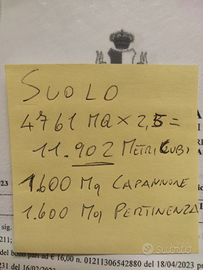 SUOLO
4761 MQ X 2,5=
11.902 METRI CUBI
1.600 Mq CAPANNONE
1.600 Mq PERTINENZA
sig.
23
del bollo pari ad € 16,00 n. 01211306542880 del 18/04/2023
231 del 16/02/2022
Subito